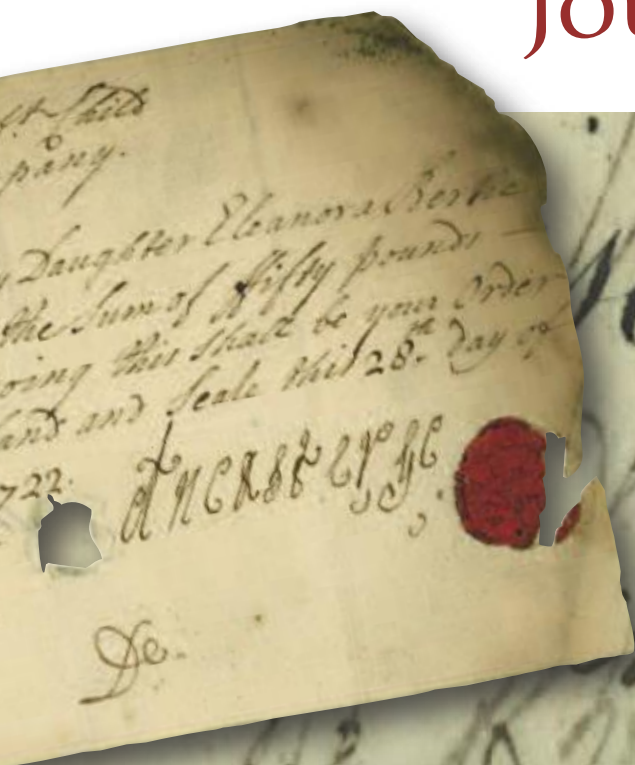 Jou
Child
pany.
Daughter Eleanora Bertie
the Sum of fifty pounds
oing this shall be your Order
and and Seale this 28th Day of
722.
De.